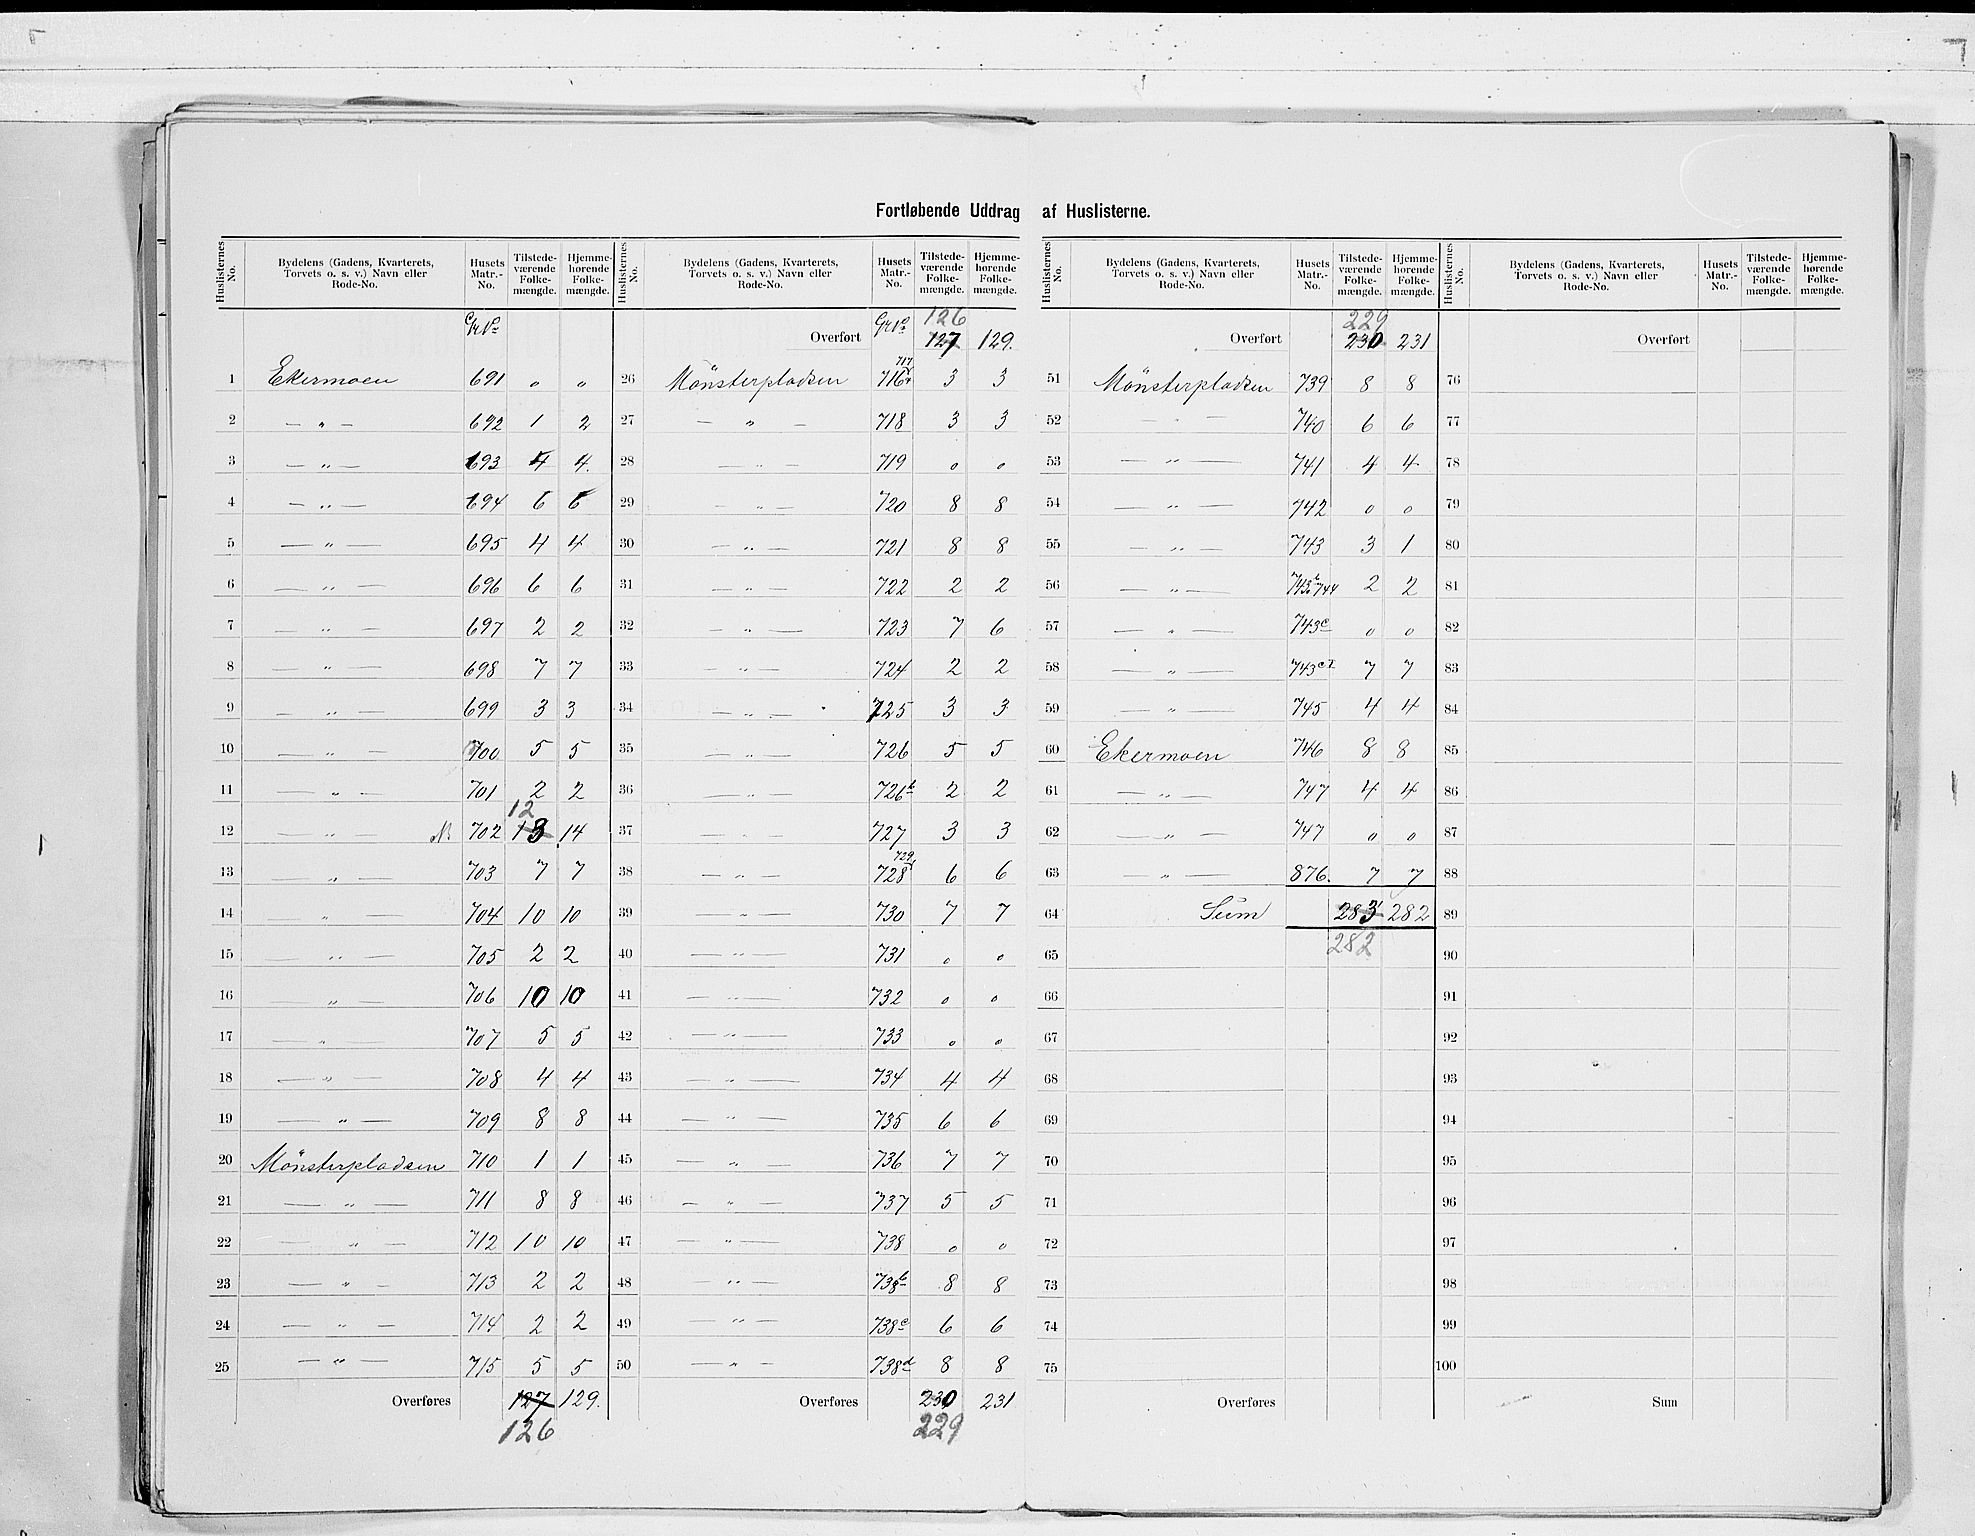 Fortløbende Uddrag af Huslisterne.
Huslisternes No. | Bydelens (Gadens, Kvarterets, Torvets o. s. v.) Navn eller Rode-No. | Husets Matr.-No. | Tilstede-værende Folke-mængde. | Hjemme-hørende Folke-mængde.
Gr No
1 Ekermoen 691 " "
2 — " — 692 1 2
3 — " — 693 4 4.
4 — " — 694 6 6
5 — " — 695 4 4
6 — " — 696 6 6
7 — " — 697 2 2
8 — " — 698 7 7
9 — " — 699 3 3
10 — " — 700 5 5
11 — " — 701 2 2
12
12 — " — N 702 13 14
13 — " — 703 7 7
14 — " — 704 10 10
15 — " — 705 2 2
16 — " — 706 10 10
17 — " — 707 5 5
18 — " — 708 4 4
19 — " — 709 8 8
20 Mönsterpladsen 710 1 1
21 — " — 711 8 8
22 — " — 712 10 10
23 — " — 713 2 2
24 — " — 714 2 2
25 — " — 715 5 5
Overføres 127 129.
126
Huslisternes No. | Bydelens (Gadens, Kvarterets, Torvets o. s. v.) Navn eller Rode-No. | Husets Matr.-No. | Tilstede-værende Folke-mængde. | Hjemme-hørende Folke-mængde.
126
Overført Gr No 127 129.
717
26 Mönsterpladsen 716 3 3
27 — " — 718 3 3
28 — " — 719 0 0
29 — " — 720 8 8
30 — " — 721 8 8
31 — " — 722 2 2
32 — " — 723 7 6
33 — " — 724 2 2
34 — " — 725 3 3
35 — " — 726 5 5
36 — " — 726b 2 2
37 — " — 727 3 3
729
38 — " — 728 6 6
39 — " — 730 7 7
40 — " — 731 0 0
41 — " — 732 0 0
42 — " — 733 0 0
43 — " — 734 4 4
44 — " — 735 6 6
45 — " — 736 7 7
46 — " — 737 5 5
47 — " — 738 0 0
48 — " — 738b 8 8
49 — " — 738c 6 6
50 — " — 738d 8 8
Overføres 230 231
229
Huslisternes No. | Bydelens (Gadens, Kvarterets, Torvets o. s. v.) Navn eller Rode-No. | Husets Matr.-No. | Tilstede-værende Folke-mængde. | Hjemme-hørende Folke-mængde.
229
Overført 230 231
51 Mönsterpladsen 739 8 8
52 — " — 740 6 6
53 — " — 741 4 4
54 — " — 742 0 0
55 — " — 743 3 1
56 — " — 743b 744 2 2
57 — " — 743c 0 0
58 — " — 743c I 7 7
59 — " — 745 4 4
60 Ekermoen 746 8 8
61 — " — 747 4 4
62 — " — 747 0 0
63 — " — 876. 7 7
64 Sum 283 282
282
65
66
67
68
69
70
71
72
73
74
75
Overføres
Huslisternes No. | Bydelens (Gadens, Kvarterets, Torvets o. s. v.) Navn eller Rode-No. | Husets Matr.-No. | Tilstede-værende Folke-mængde. | Hjemme-hørende Folke-mængde.
Overført
76
77
78
79
80
81
82
83
84
85
86
87
88
89
90
91
92
93
94
95
96
97
98
99
100
Sum